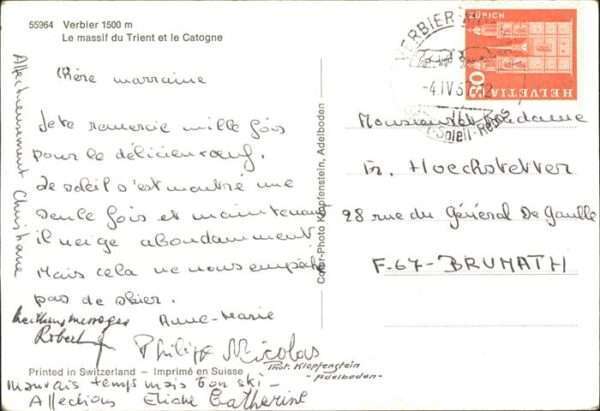 55964 Verbier 1500 m
Le massif du Trient et le Catogne
Chère marraine
Je te remercie mille fois
pour le délicieux œuf.
Le soleil s'est montré une
seule fois et maintenant
il neige abondamment
Mais cela ne nous empêche
pas de skier.
Anne-Marie
Meilleurs messages
Robert
Philipp Nicolas
Phot. Klopfenstein
-Adelboden-
Printed in Switzerland – Imprimé en Suisse
Mauvais temps mais bon ski –
Affections Eliane Catherine
Affectueusement Christiane
Color-Photo Klopfenstein, Adelboden
VERBIER
-4.IV.67-12
Soleil-Repos
ZÜRICH
HELVETIA
30
Monsieur et Madame
Fr. Hoechstetter
28 rue du Général De Gaulle
F-67-BRUMATH